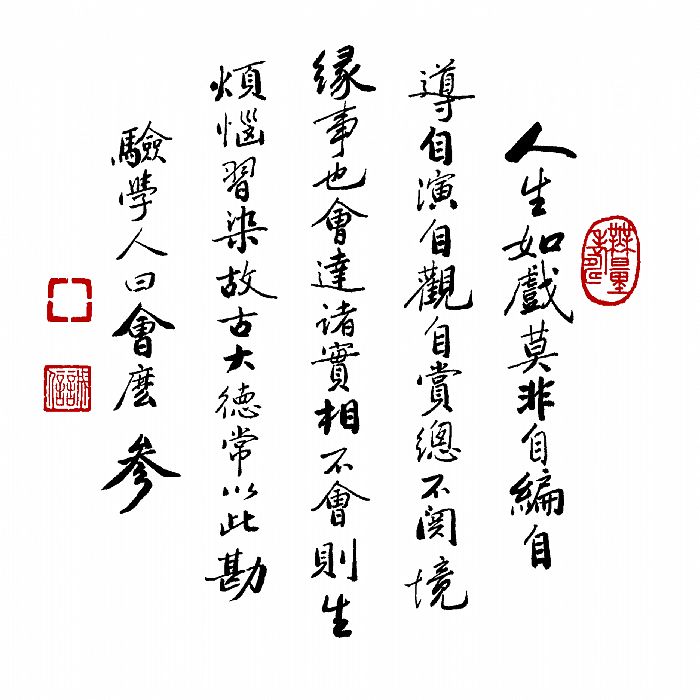 人生如戲莫非自編自
導自演自觀自賞總不関境
緣事也會達諸實相不會則生
煩惱習染故古大德常以此勘
驗學人曰會麼參